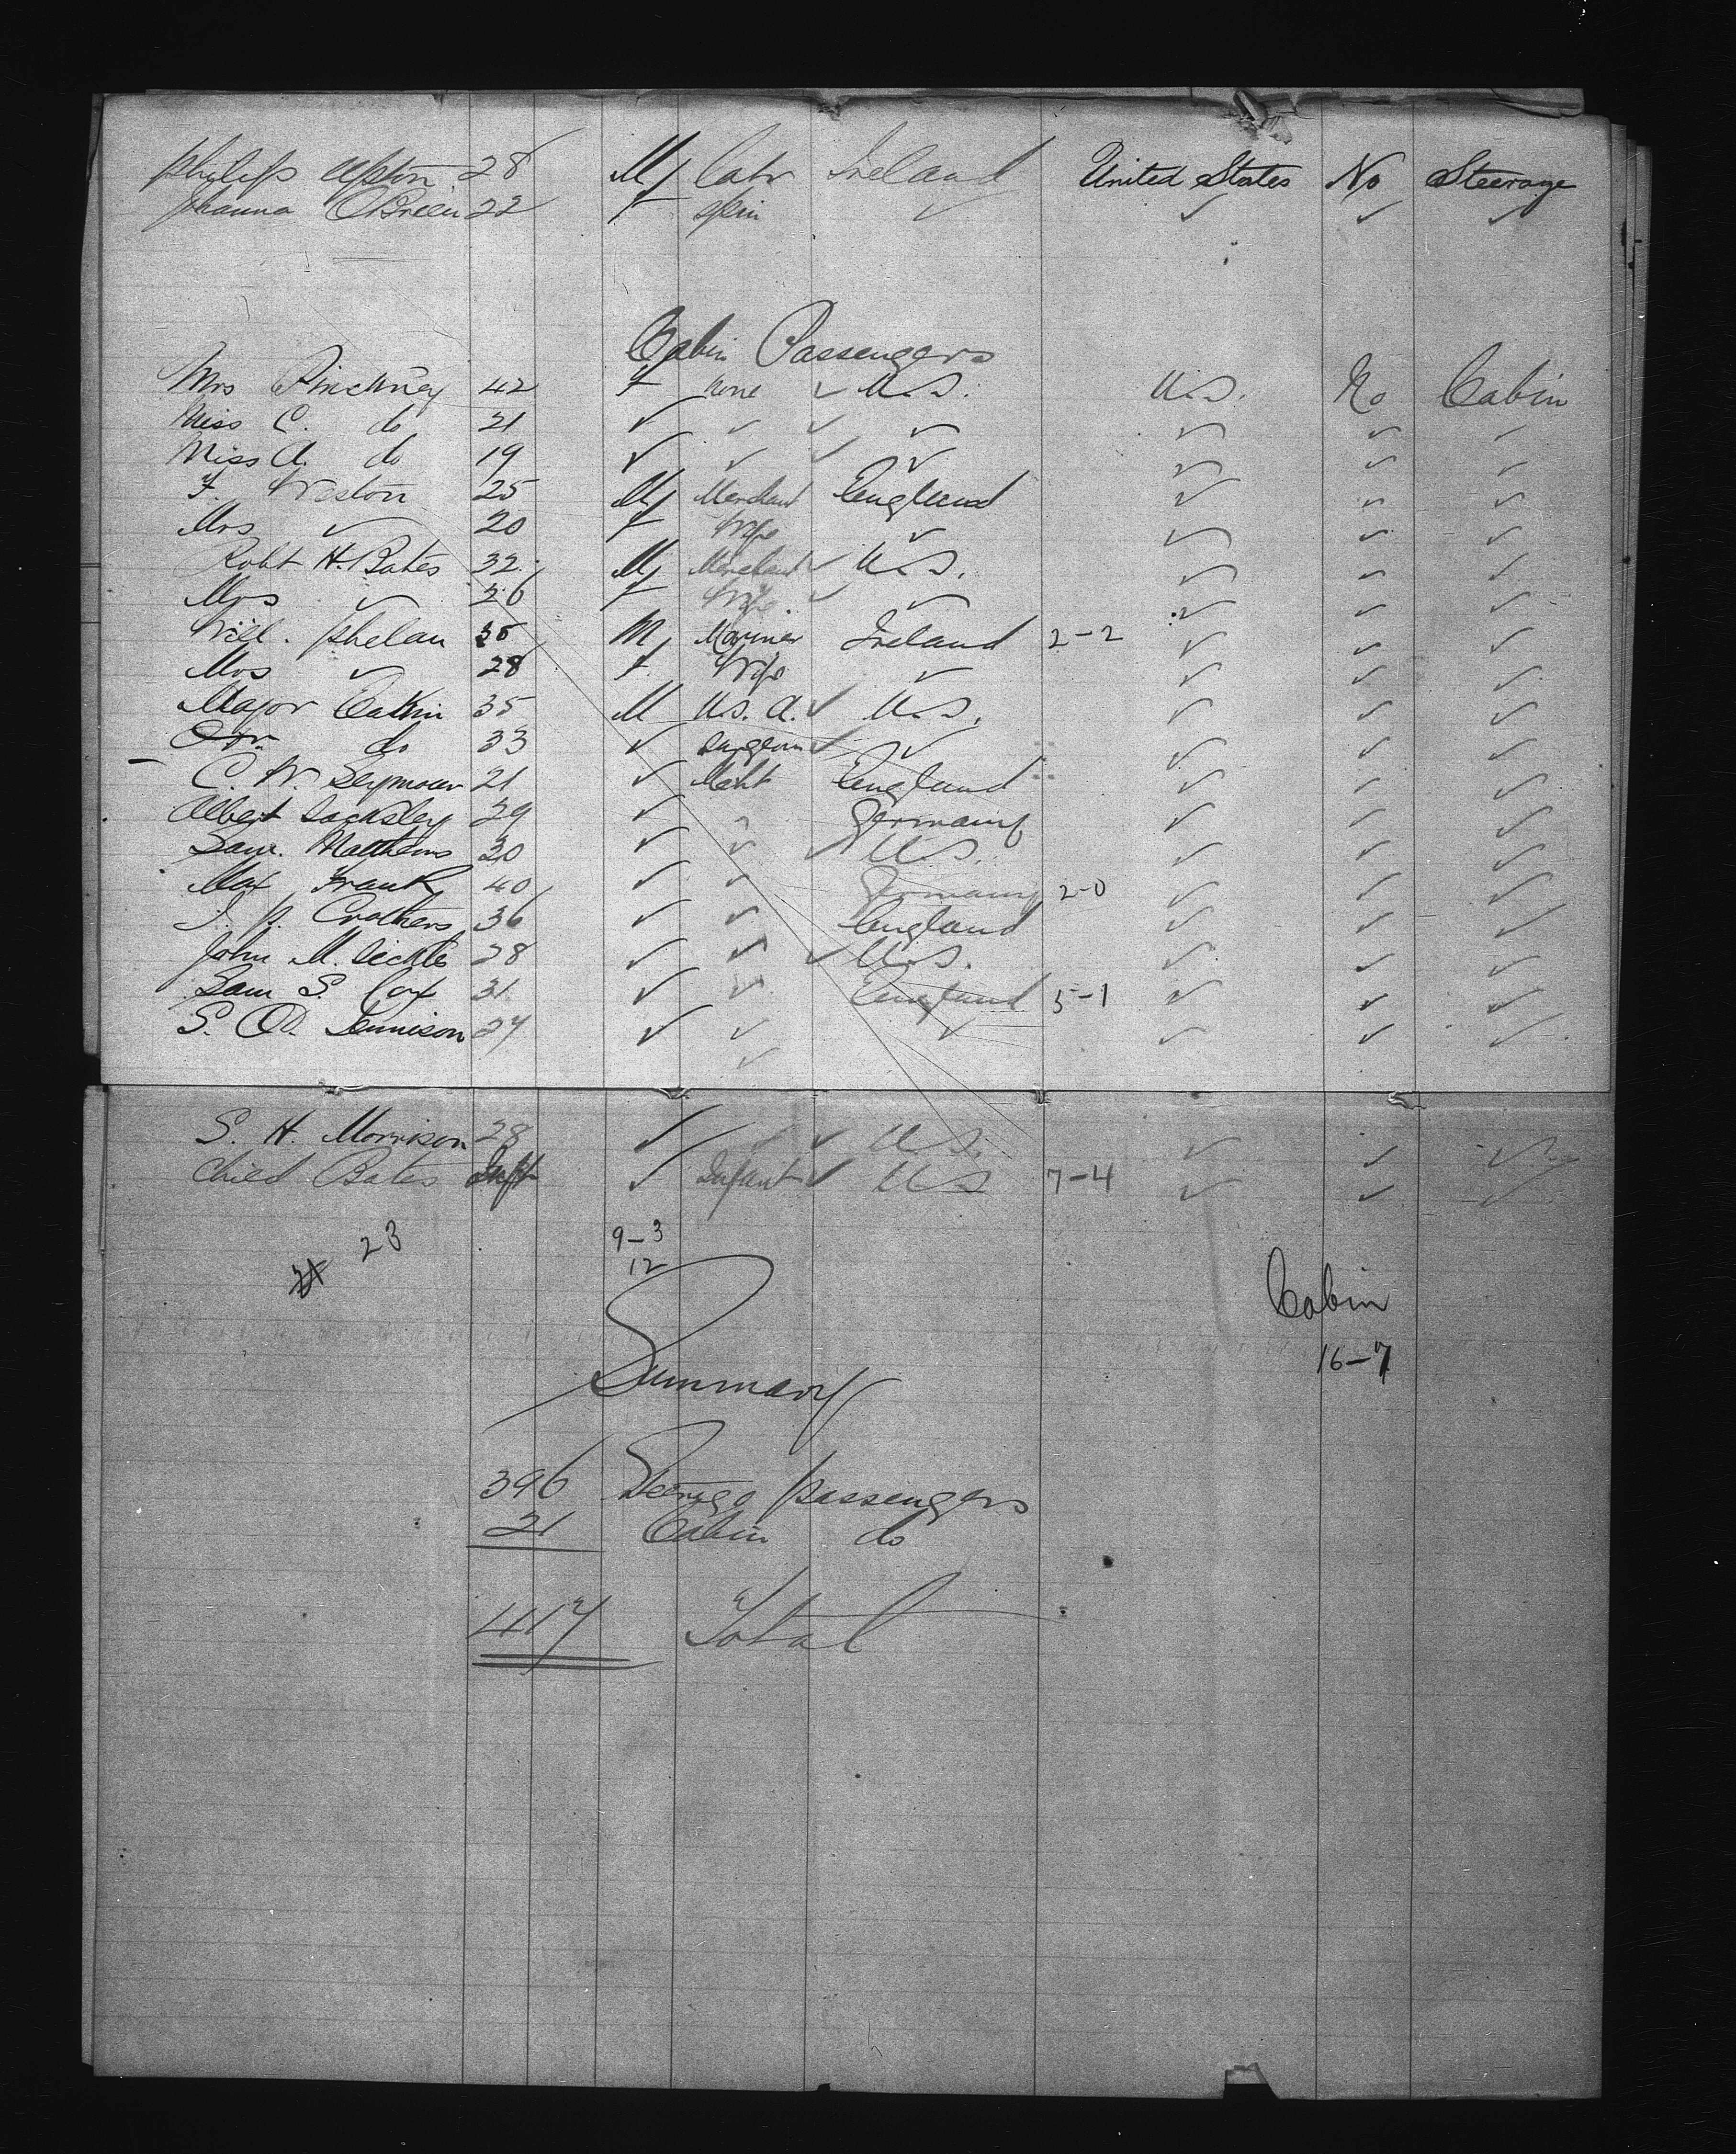 Philip Upton 28 M Labr Ireland United States No Steerage
Johanna OBrien 22 F Spin ✓ ✓ ✓ ✓
Cabin Passengers
Mrs Pinckney 42 F None ✓ U.S. U.S. No Cabin
Miss C. do 21 ✓ ✓ ✓ ✓ ✓ ✓ ✓
Miss A. do 19 ✓ ✓ ✓ ✓ ✓ ✓ ✓
F. Weston 25 M Merchant England ✓ ✓ ✓
Mrs ✓ 20 F Wife ✓ ✓ ✓ ✓
Robt H. Bates 32 M Merchant ✓ U.S. ✓ ✓ ✓
Mrs ✓ 26 F Wife ✓ ✓ ✓ ✓ ✓
Will. Phelan 35 M Mariner Ireland 2-2 ✓ ✓ ✓
Mrs ✓ 28 F Wife ✓ ✓ ✓ ✓
Major Eakin 35 M U.S.A. ✓ U.S. ✓ ✓ ✓
do 33 ✓ Surgeon ✓ ✓ ✓ ✓ ✓
C. W. Seymour 21 ✓ Mcht England ✓ ✓ ✓
Albert 29 ✓ ✓ Germany ✓ ✓ ✓
Saml. Matthews 30 ✓ ✓ ✓ U.S. ✓ ✓ ✓
Max Frank 40 ✓ ✓ Germany 2-0 ✓ ✓ ✓
Crothers 36 ✓ ✓ England ✓ ✓ ✓
John M. 28 ✓ ✓ ✓ U.S. ✓ ✓ ✓
Sam S. Cox 31 ✓ ✓ England 5-1 ✓ ✓ ✓
S. O. Tennison 27 ✓ ✓ ✓ ✓ ✓ ✓
✓
S. H. Morrison 28 ✓ ✓ ✓ U.S. ✓ ✓ ✓
Child Bates Inft ✓ Infant ✓ US 7-4 ✓ ✓ ✓
23 9-3
21 12
Cabin
16-7
Summary
396 Steerage passengers
21 Cabin do
417 Total